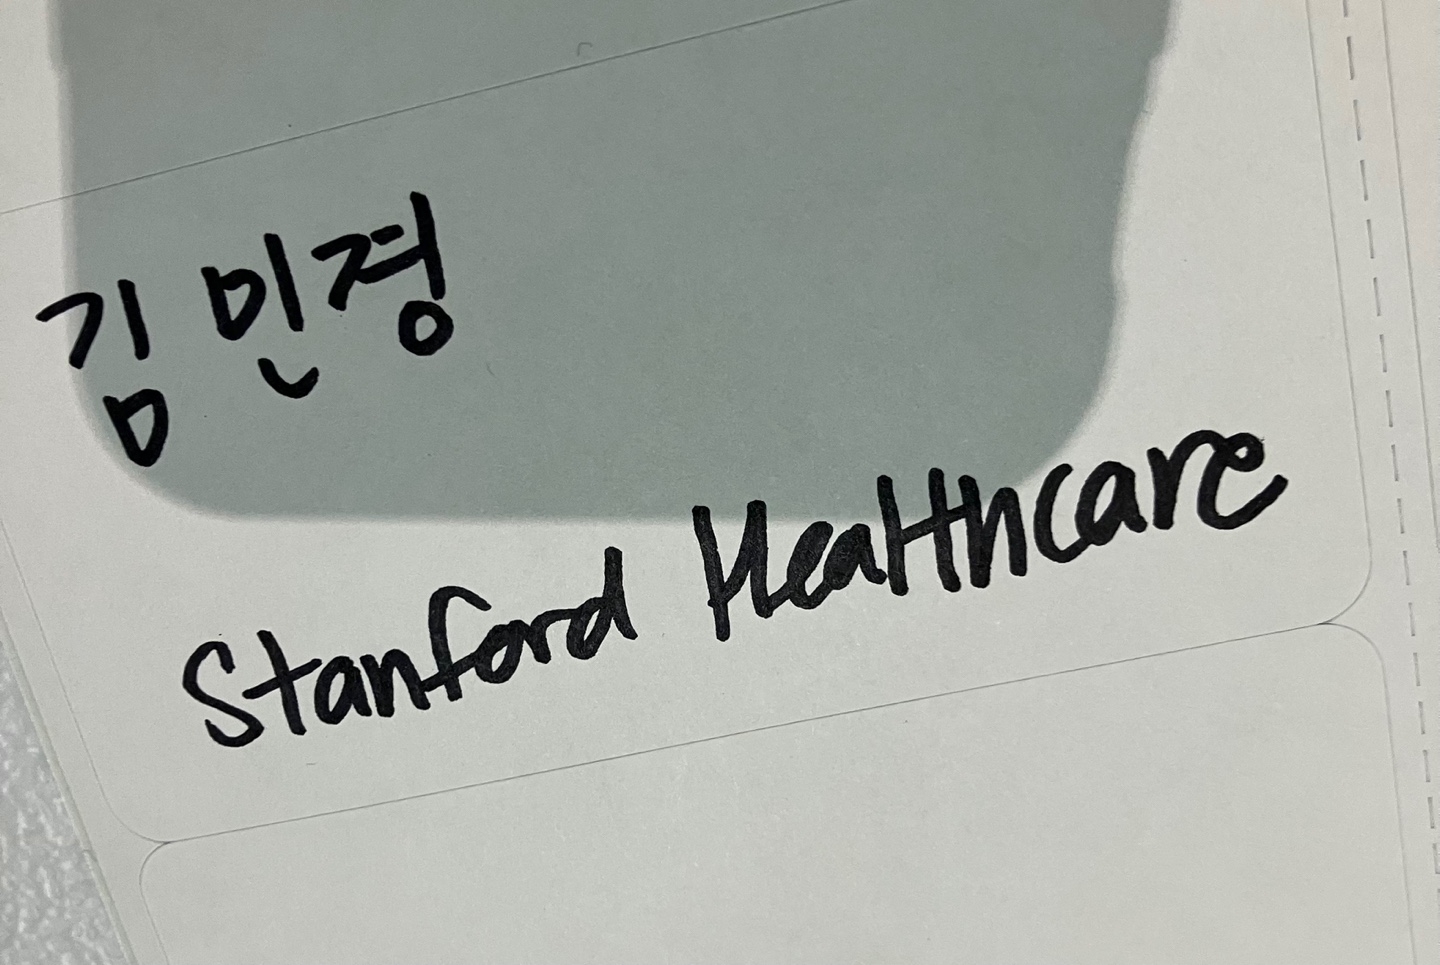 김 민경
Stanford Healthcare